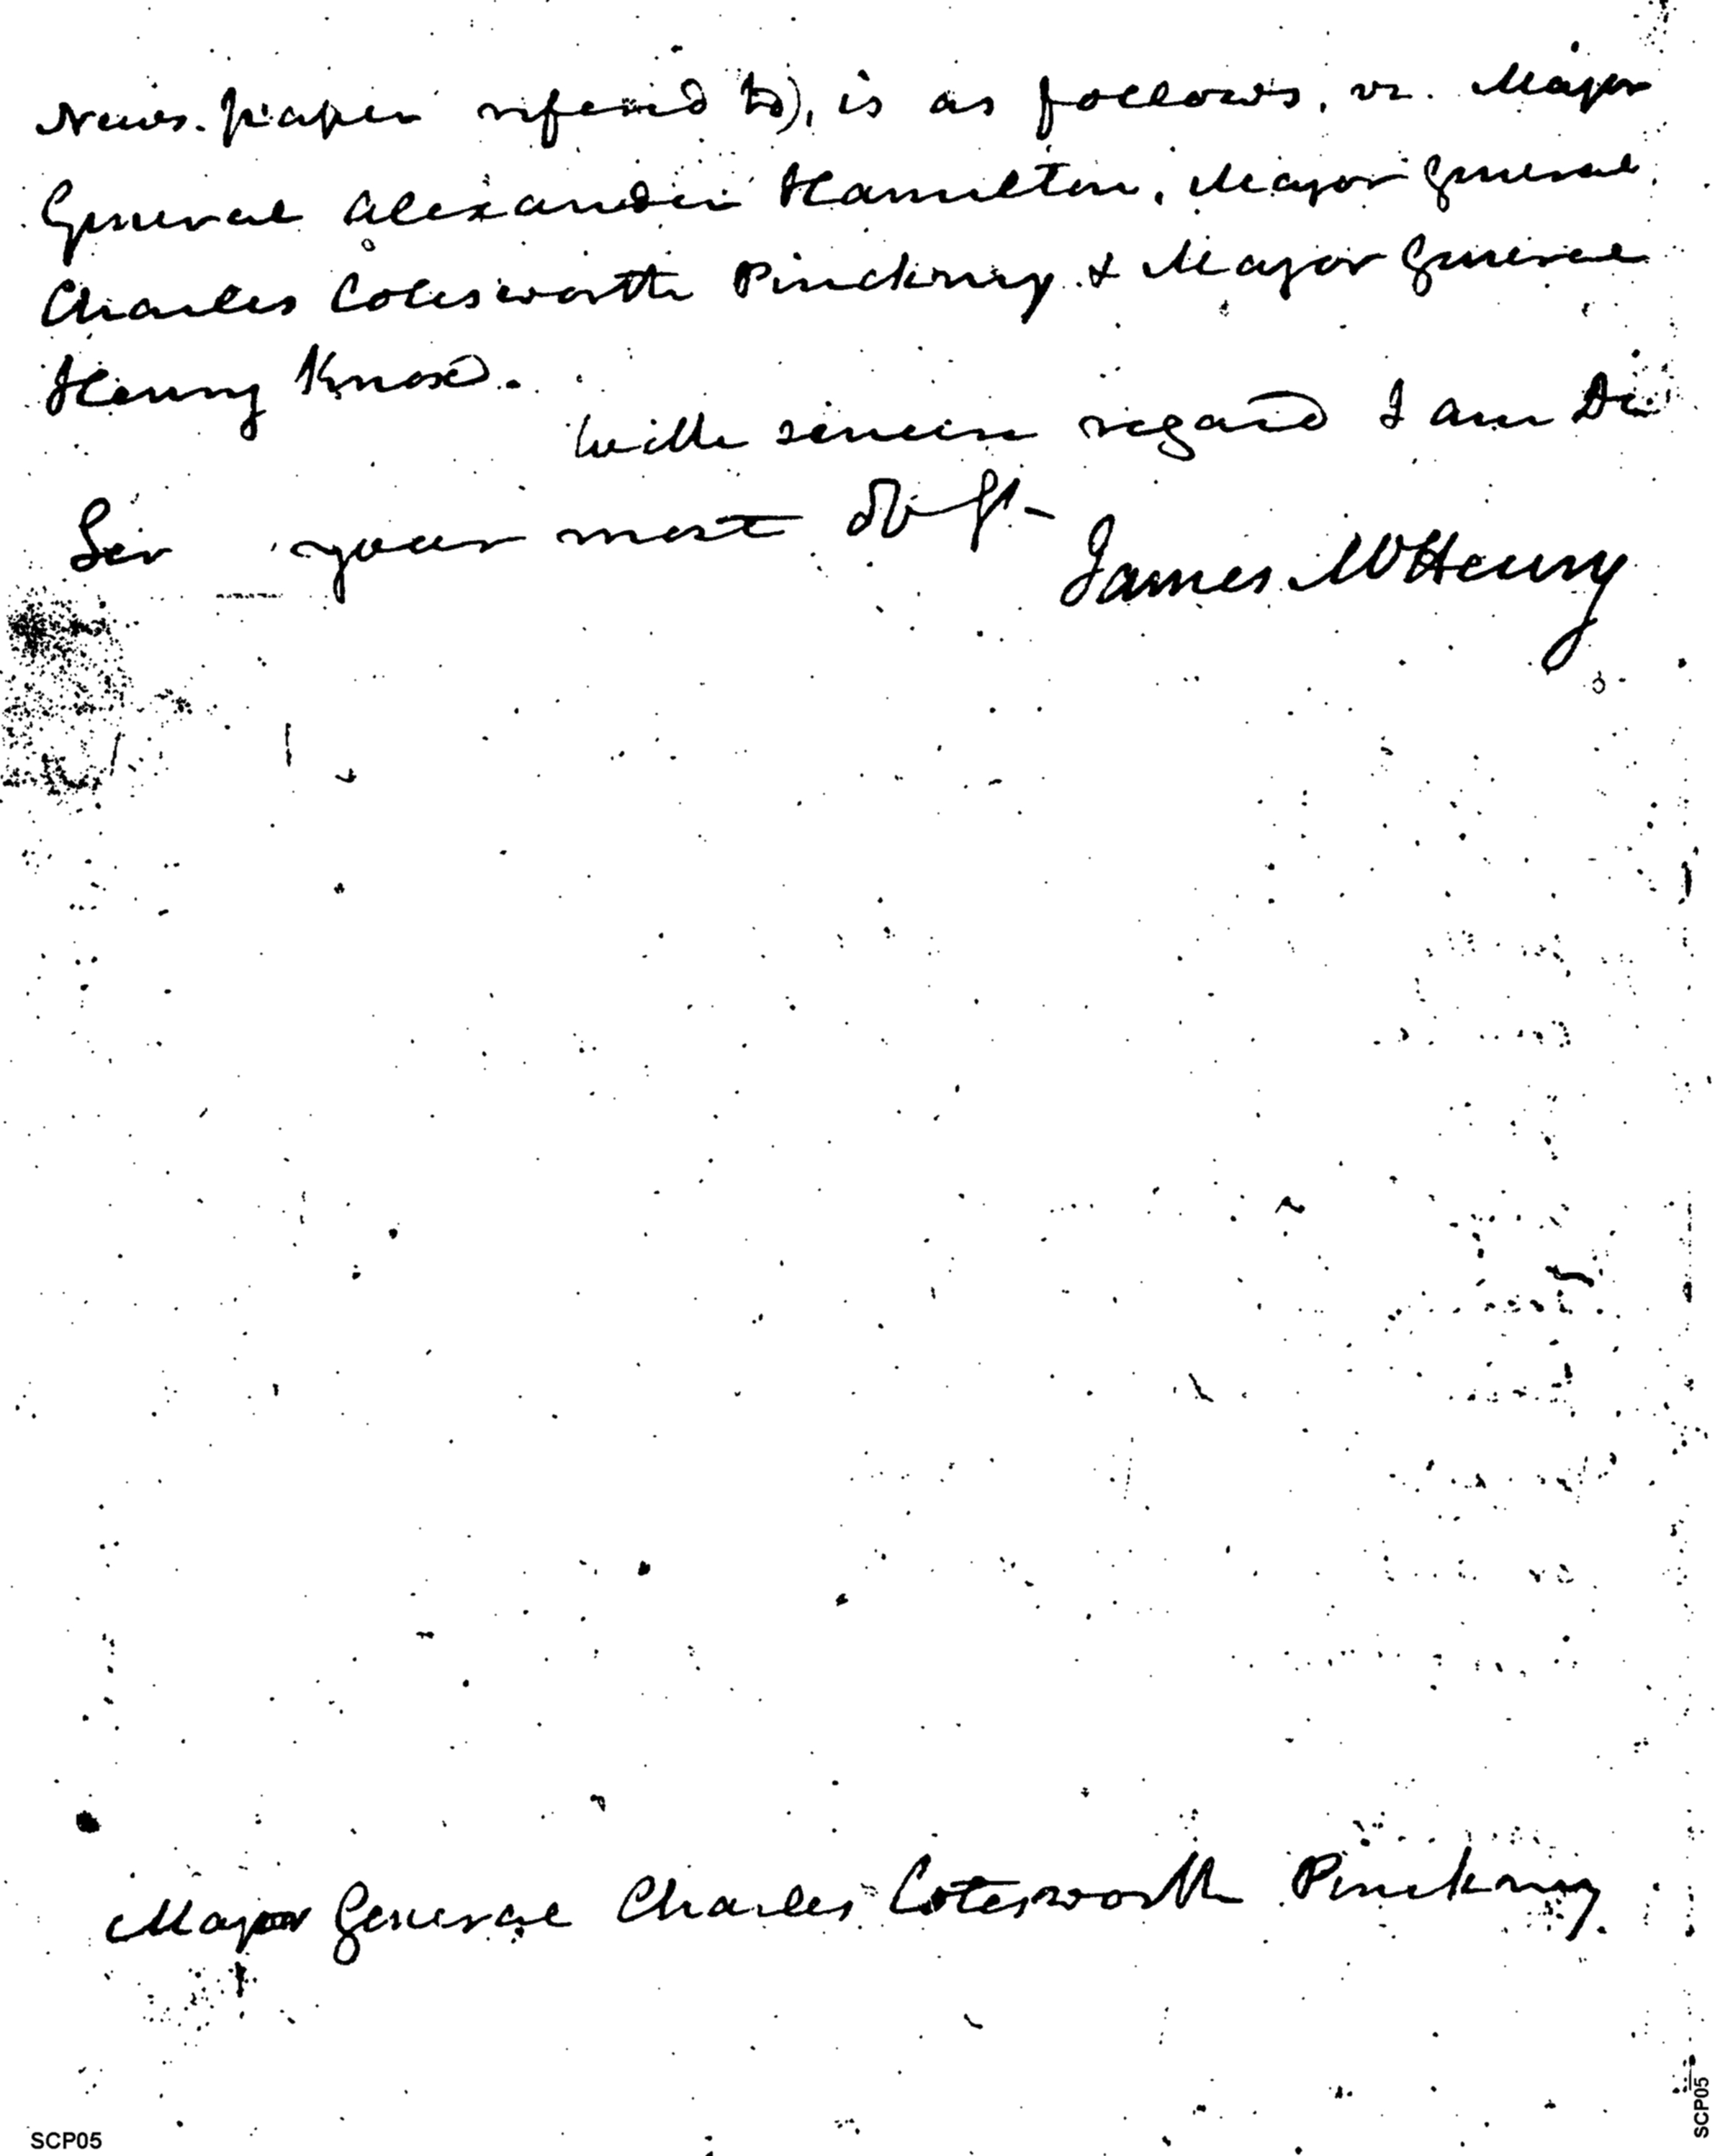 News-paper referred to), is as follows, vz. Major
General Alexander Hamilton, Major General
Charles Cotesworth Pinckney & Major General
Henry Knox.
With sincere regard I am Dr
Sir your most Ob St-
James McHenry
Major General Charles Cotesworth Pinckney.
SCP05
SCP05